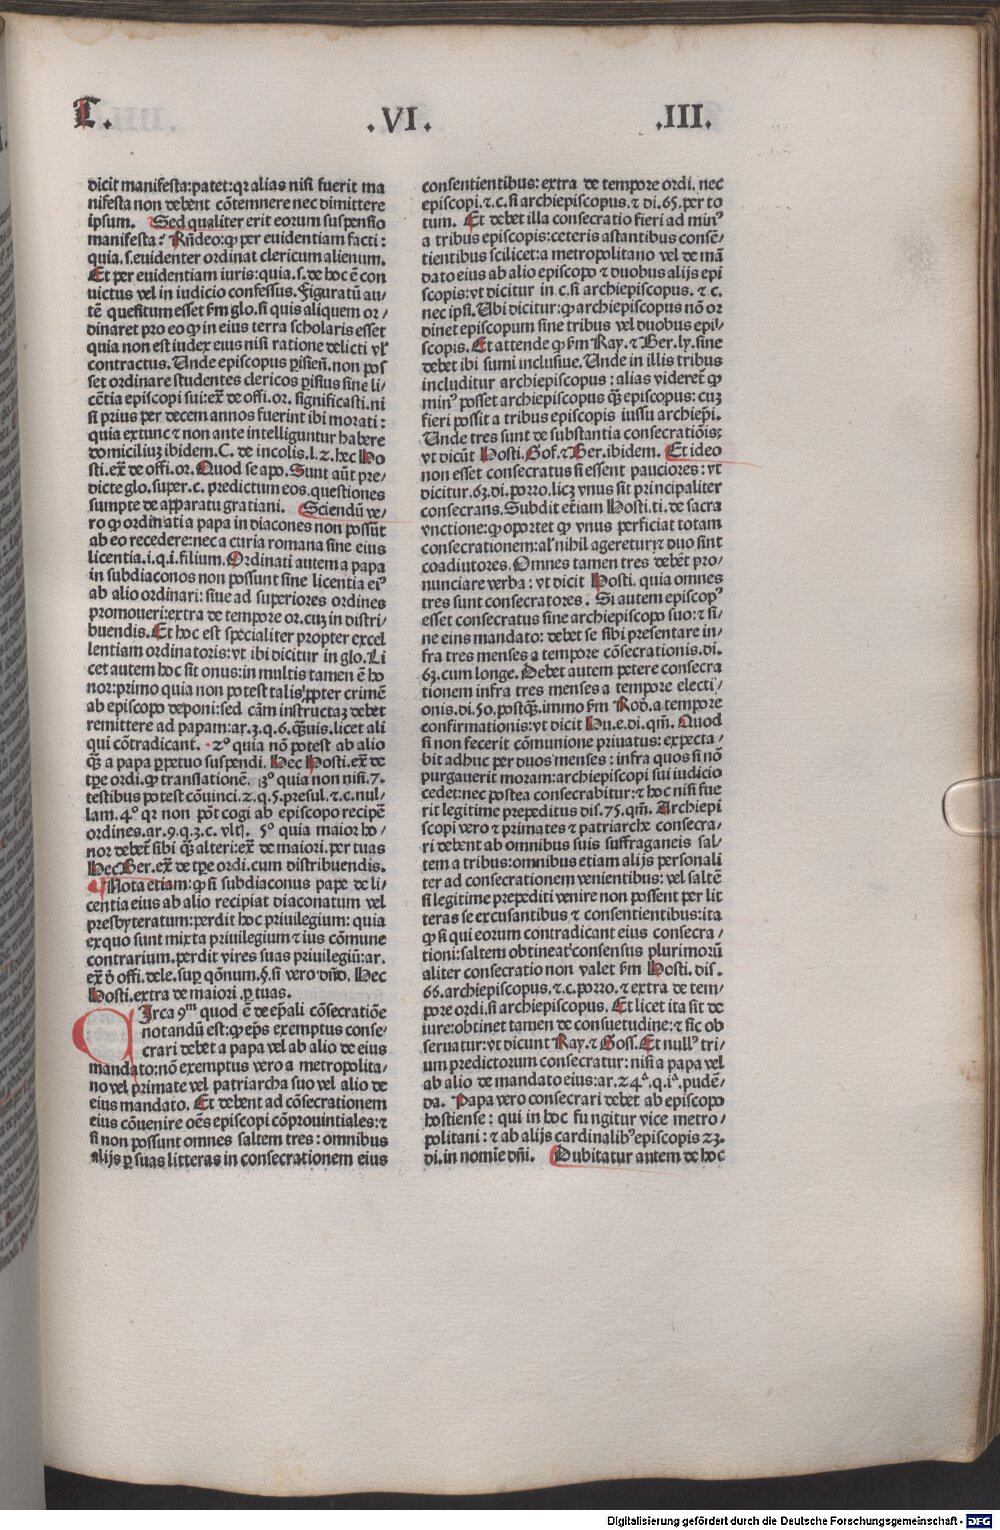 L.
.VI.
.III.
dicit manifesta:patet:qꝛ alias nisi fuerit ma
nifesta non debent cōtemnere nec dimittere
ipsum. Sed qualiter erit eorum suspensio
manifesta? Rñdeo:ꝙ per euidentiam facti:
quia.s.euidenter ordinat clericum alienum.
Et per euidentiam iuris:quia.s.de hoc ē con
uictus vel in iudicio confessus.Figuratū au/
tē quesitum esset ẜm glo.si quis aliquem or/
dinaret pro eo ꝙ in eius terra scholaris esset
quia non est iudex eius nisi ratione delicti vl'
contractus.Unde episcopus ꝑisieñ.non pos
set ordinare studentes clericos ꝑisius sine li/
cētia episcopi sui:ex̄ de offi.or.significasti.ni
si prius per decem annos fuerint ibi morati:
quia extunc ⁊ non ante intelliguntur habere
domiciliuꝫ ibidem.C. de incolis.l.2.hec Ho
sti.ex̄ de offi.or.Quod se apo.Sunt aūt pre/
dicte glo.super.c. predictum eos.questiones
sumpte de apparatu gratiani. Sciendū ve/
ro ꝙ ordinati a papa in diacones non possūt
ab eo recedere:nec a curia romana sine eius
licentia.i.q.i.filium.Ordinati autem a papa
in subdiaconos non possunt sine licentia ei⁹
ab alio ordinari: siue ad superiores ordines
promoueri:extra de tempore or.cuꝫ in distri/
buendis.Et hoc est specialiter propter excel
lentiam ordinatoris:vt ibi dicitur in glo.Li
cet autem hoc sit onus:in multis tamen ē ho
nor:primo quia non potest talis ꝓpter crimē
ab episcopo deponi:sed cām instructaꝫ debet
remittere ad papam:ar.3.q.6.ꝙ̄uis.licet ali
qui cōtradicant. 2º quia nō potest ab alio
ꝙ̄ a papa ꝑpetuo suspendi. Hec Hosti.ex̄ de
tꝑe ordi.ꝙ translationē. 3º quia non nisi.7.
testibus potest cōuinci.2.q.5.presul.⁊.c.nul/
lam.4º qꝛ non pōt cogi ab episcopo recipē
ordines.ar.9.q.3.c. vltį. 5º quia maior ho/
nor debet̄ sibi ꝙ̄ alteri:ex̄ de maiori.per tuas
Hec Ber.ex̄ de tꝑe ordi.cum distribuendis.
Nota etiam:ꝙ si subdiaconus pape de li/
centia eius ab alio recipiat diaconatum vel
presbyteratum:perdit hoc priuilegium: quia
exquo sunt mixta priuilegium ⁊ ius cōmune
contrarium.perdit vires suas priuilegiū:ar.
ex̄ ð offi.dele.suꝑ qōnum.§.si vero.dñō. Hec
Hosti.extra de maiori.ꝑ tuas.
Circa 9ᵐ quod ē de eṕali cōsecratiōe
notandū est:ꝙ ep̄s exemptus conse/
crari debet a papa vel ab alio de eius
mandato:nō exemptus vero a metropolita/
no vel primate vel patriarcha suo vel alio de
eius mandato. Et debent ad cōsecrationem
eius cōuenire oēs episcopi cōprouintiales:⁊
si non possunt omnes saltem tres: omnibus
alijs ꝑ suas litteras in consecrationem eius
consentientibus: extra de tempore ordi. nec
episcopi.⁊.c.si archiepiscopus.⁊ di.65.per to
tum. Et debet illa consecratio fieri ad min⁹
a tribus episcopis:ceteris astantibus consē/
tientibus scilicet:a metropolitano vel de mā
dato eius ab alio episcopo ⁊ duobus alijs epi
scopis:vt dicitur in c.si archiepiscopus. ⁊ c.
nec ipsi.Ubi dicitur:ꝙ archiepiscopus nō or
dinet episcopum sine tribus vel duobus epi/
scopis.Et attende ꝙ ẜm Ray.⁊ Ber.ly.sine
debet ibi sumi inclusiue.Unde in illis tribus
includitur archiepiscopus:alias videret̄ ꝙ
min⁹ posset archiepiscopus ꝙ̄ episcopus: cuꝫ
fieri possit a tribus episcopis iussu archiep̄i.
Unde tres sunt de substantia consecratiōis:
vt dicūt Hosti.Gof.⁊ Ber.ibidem. Et ideo
non esset consecratus si essent pauciores: vt
dicitur.63.di.porro.licꝫ vnus sit principaliter
consecrans.Subdit etiam Hosti.ti.de sacra
vnctione:ꝙ oportet ꝙ vnus perficiat totam
consecrationem:al' nihil ageretur:⁊ duo sint
coadiutores.Omnes tamen tres debēt pro/
nunciare verba: vt dicit Hosti. quia omnes
tres sunt consecratores. Si autem episcop⁹
esset consecratus sine archiepiscopo suo:⁊ si/
ne eins mandato: debet se sibi presentare in/
fra tres menses a tempore cōsecrationis.di.
63.cum longe. Debet autem petere consecra
tionem infra tres menses a tempore electi/
onis.di.50.postꝙ̄.immo ẜm Rod.a tempore
confirmationis:vt dicit Hu.e.di.qm̄. Quod
si non fecerit cōmunione priuatus: expecta/
bit adhuc per duos menses: infra quos si nō
purgauerit moram:archiepiscopi sui iudicio
cedet:nec postea consecrabitur:⁊ hoc nisi fue
rit legitime prepeditus dis.75.qm̄. Archiepi
scopi vero ⁊ primates ⁊ patriarche consecra/
ri debent ab omnibus suis suffraganeis sal/
tem a tribus:omnibus etiam alijs personali
ter ad consecrationem venientibus: vel saltē
si legitime prepediti venire non possent per lit
teras se excusantibus ⁊ consentientibus:ita
ꝙ si qui eorum contradicant eius consecra/
tioni:saltem obtineat̄ consensus plurimorū
aliter consecratio non valet ẜm Hosti. dis.
66.archiepiscopus.⁊.c.porro.⁊ extra de tem/
pore ordi.si archiepiscopus.Et licet ita sit de
iure:obtinet tamen de consuetudine:⁊ sic ob
seruatur:vt dicunt Ray.⁊ Goff.Et null⁹ tri/
um predictorum consecratur: nisi a papa vel
ab alio de mandato eius:ar.24ª.q.iª.pudē/
da. Papa vero consecrari debet ab episcopo
hostiense: qui in hoc fungitur vice metro/
politani:⁊ ab alijs cardinalib⁹ episcopis 23.
di.in nomie dñi. Dubitatur autem de hoc
Digitalisierung gefördert durch die Deutsche Forschungsgemeinschaft - DFG